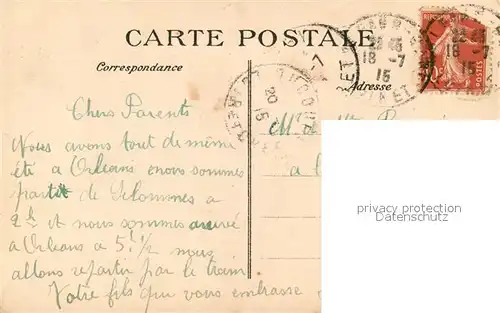 CARTE POSTALE
Correspondance
Adresse
22 45
18 -7
15
22 45
18 -7
15
LOIRET
20
15
10c
POSTES
Chers Parents
Nous avons tout de même
été a Orléans nous sommes
partit de Selommes a
2h et nous sommes arrivé
a Orléans a 5h 1/2 nous
allons repartir par le train
Votre fils qui vous embrasse
M
a
privacy protection
Datenschutz